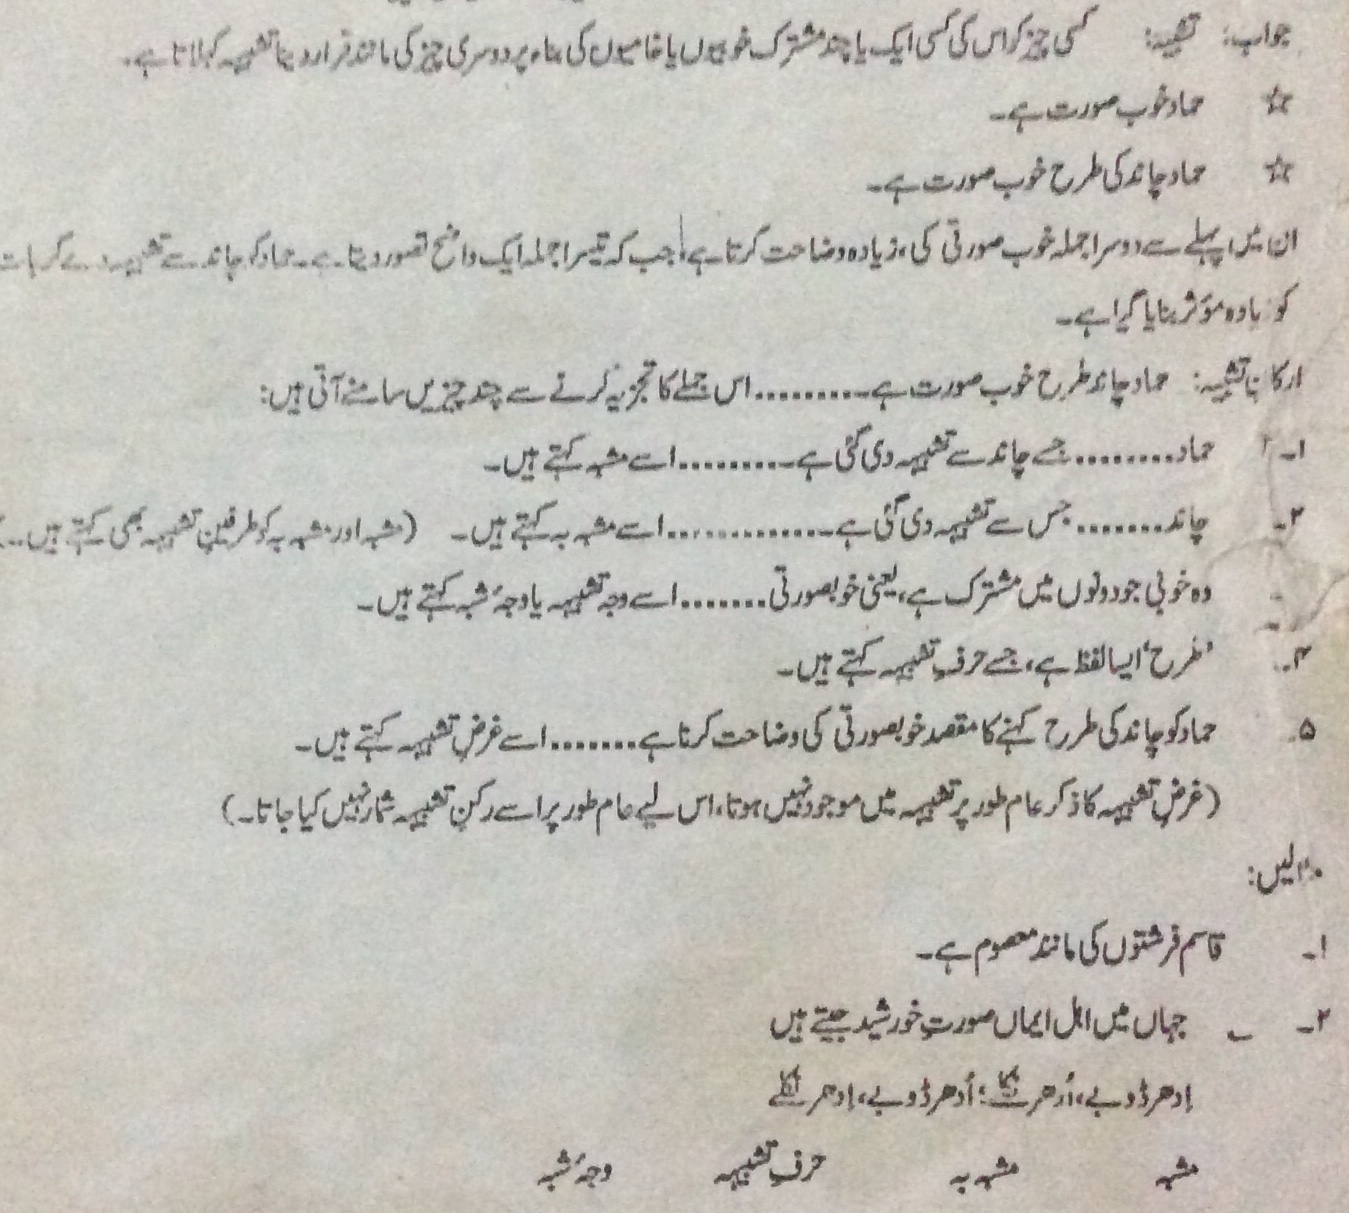 جواب: تشبیہ: کسی چیز کو اس کی کسی ایک یا چند مشترک خوبیوں یا خامیوں کی بناء پر دوسری چیز کی مانند قرار دینا تشبیہ کہلاتا ہے۔
☆ حماد خوب صورت ہے۔
☆ حماد چاند کی طرح خوب صورت ہے۔
ان میں پہلے سے دوسرا جملہ خوب صورتی کی، زیادہ وضاحت کرتا ہے، جب کہ تیسرا جملہ ایک واضح تصور دیتا ہے۔ حماد کو چاند سے تشبیہ دے کر بات
کو زیادہ مؤثر بنایا گیا ہے۔
ارکانِ تشبیہ: حماد چاند طرح خوب صورت ہے۔......... اس جملے کا تجزیہ کرنے سے چند چیزیں سامنے آتی ہیں:
۱۔ حماد......... جسے چاند سے تشبیہ دی گئی ہے۔......... اسے مشبہ کہتے ہیں۔
۲۔ چاند....... جس سے تشبیہ دی گئی ہے۔............ اسے مشبہ بہ کہتے ہیں۔ (مشبہ اور مشبہ بہ کو طرفینِ تشبیہ بھی کہتے ہیں۔)
وہ خوبی جو دونوں میں مشترک ہے، یعنی خوبصورتی....... اسے وجہ تشبیہ یا وجۂ شبہ کہتے ہیں۔
۴۔ ’طرح‘ ایسا لفظ ہے، جسے حرفِ تشبیہ کہتے ہیں۔
۵۔ حماد کو چاند کی طرح کہنے کا مقصد خوبصورتی کی وضاحت کرنا ہے....... اسے غرضِ تشبیہ کہتے ہیں۔
(غرضِ تشبیہ کا ذکر عام طور پر تشبیہ میں موجود نہیں ہوتا، اس لیے عام طور پر اسے رکنِ تشبیہ شمار نہیں کیا جاتا۔)
مثالیں:
۱۔ قاسم فرشتوں کی مانند معصوم ہے۔
۲۔ جہاں میں اہلِ ایماں صورتِ خورشید جیتے ہیں
اِدھر ڈوبے، اُدھر نکلے؛ اُدھر ڈوبے، اِدھر نکلے
مشبہ مشبہ بہ حرفِ تشبیہ وجۂ شبہ